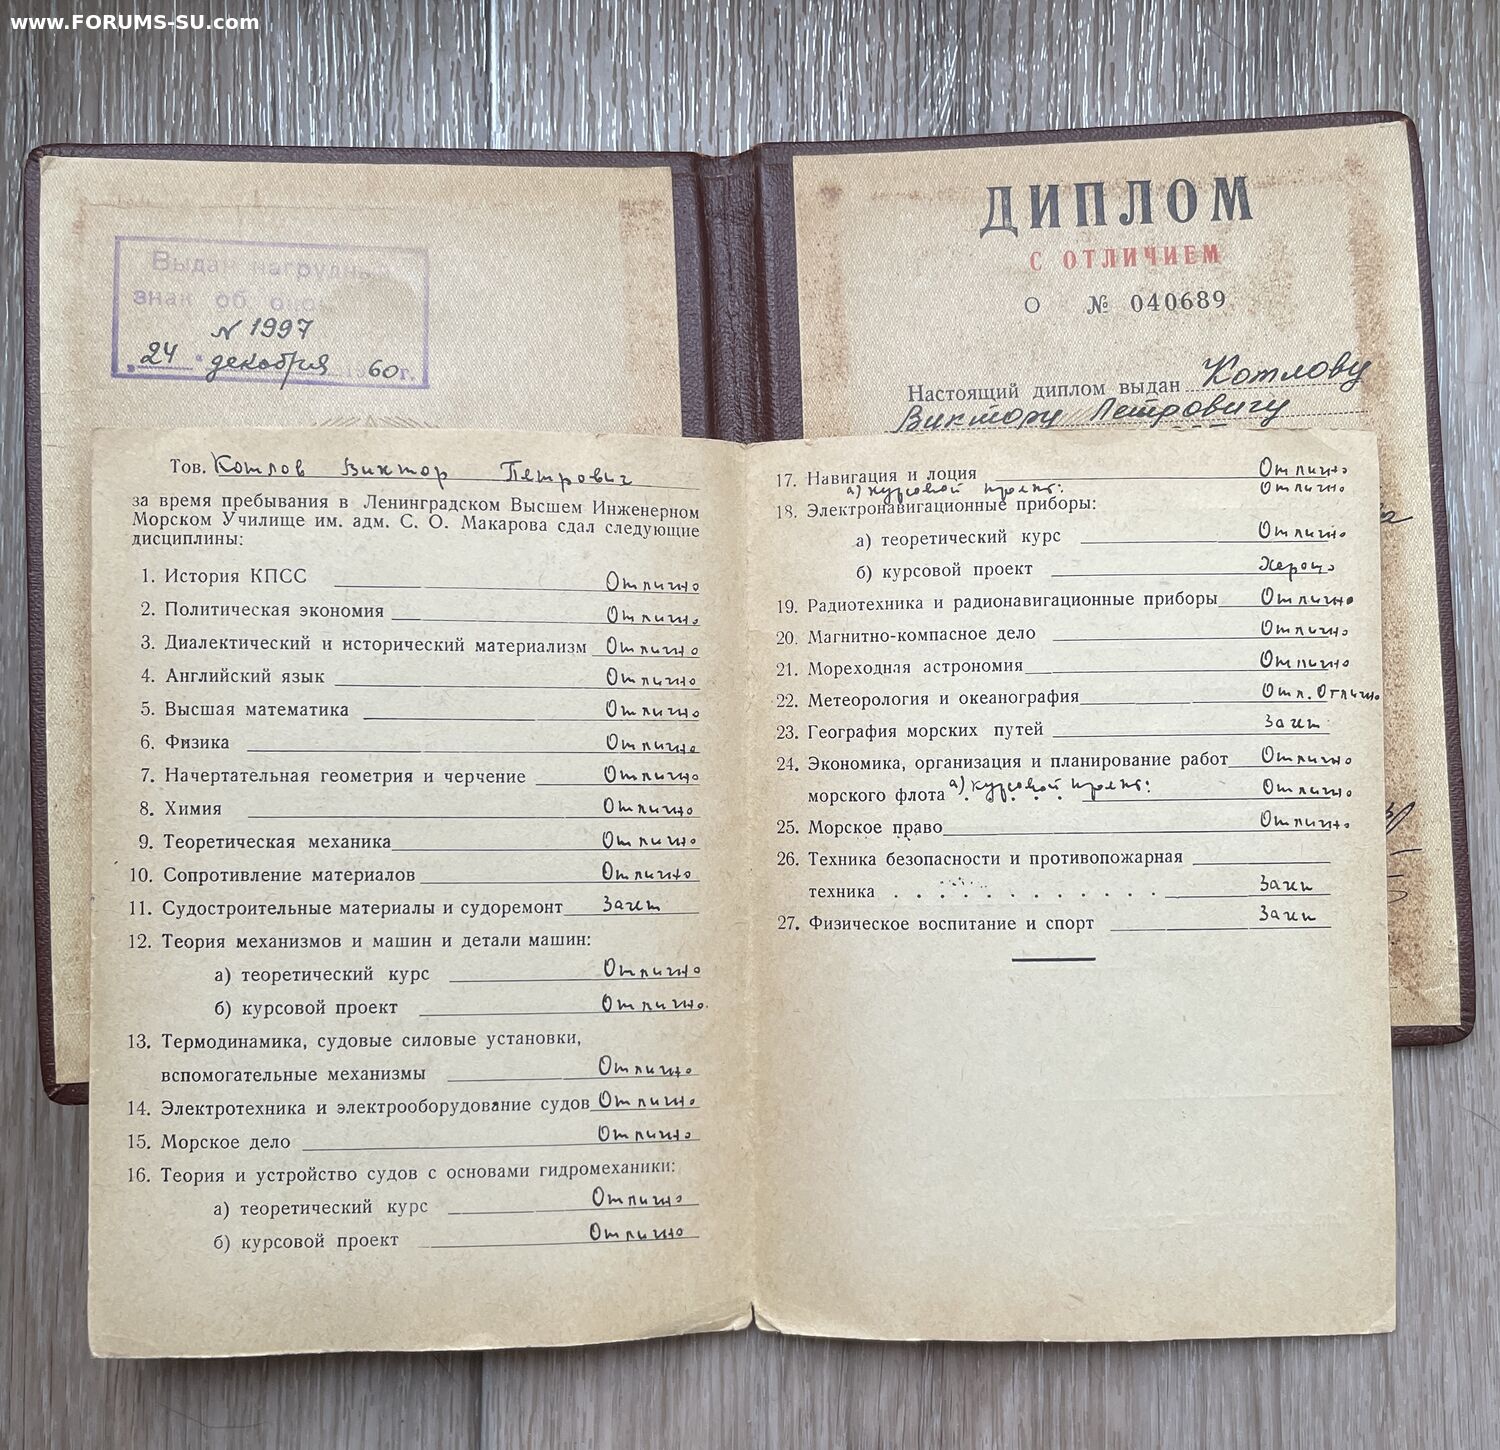 www.FORUMS-SU.com
Выдан нагрудный
знак об
№ 1997
„24" декабря 1960г.
ДИПЛОМ
С ОТЛИЧИЕМ
О № 040689
Настоящий диплом выдан Котлову
Виктору Петровичу
Тов. Котлов Виктор Петрович
за время пребывания в Ленинградском Высшем Инженерном
Морском Училище им. адм. С. О. Макарова сдал следующие
дисциплины:
1. История КПСС Отлично
2. Политическая экономия Отлично
3. Диалектический и исторический материализм Отлично
4. Английский язык Отлично
5. Высшая математика Отлично
6. Физика Отлично
7. Начертательная геометрия и черчение Отлично
8. Химия Отлично
9. Теоретическая механика Отлично
10. Сопротивление материалов Отлично
11. Судостроительные материалы и судоремонт Зачет
12. Теория механизмов и машин и детали машин:
а) теоретический курс Отлично
б) курсовой проект Отлично.
13. Термодинамика, судовые силовые установки,
вспомогательные механизмы Отлично
14. Электротехника и электрооборудование судов Отлично
15. Морское дело Отлично
16. Теория и устройство судов с основами гидромеханики:
а) теоретический курс Отлично
б) курсовой проект Отлично
17. Навигация и лоция Отлично
а) курсовой проект: Отлично
18. Электронавигационные приборы:
а) теоретический курс Отлично
б) курсовой проект Хорошо
19. Радиотехника и радионавигационные приборы Отлично
20. Магнитно-компасное дело Отлично
21. Мореходная астрономия Отлично
22. Метеорология и океанография Отл. Отлично
23. География морских путей Зачет
24. Экономика, организация и планирование работ Отлично
морского флота а) курсовой проект: Отлично
25. Морское право Отлично
26. Техника безопасности и противопожарная
техника . . . . . . . . . . . . Зачет
27. Физическое воспитание и спорт Зачет